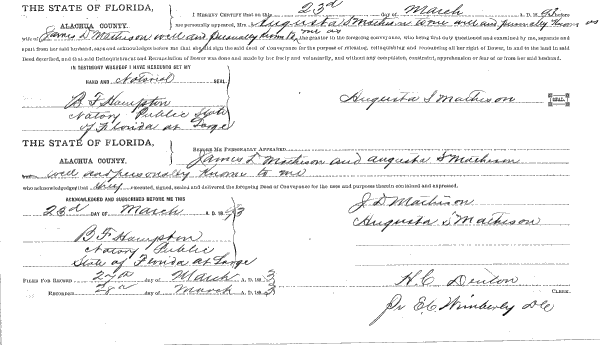 THE STATE OF FLORIDA,
ALACHUA COUNTY.
I HEREBY CERTIFY that on this 23d day of March A. D. 189 before
me personally appeared, Mrs. Augusta S Matheson to me well and personally known as
wife of James D Matheson well and personally known to me as the grantor in the foregoing conveyance, who being that only questioned and examined by me, separate and
apart from her said husband, says and acknowledges before me that she did sign the said deed of Conveyance for the purpose of releasing, relinquishing and renouncing all her right of Dower, in and to the land in said
Deed described, and that said Relinquishment and Renunciation of Dower was done and made by her freely and voluntarily, and without any compulsion, constraint, apprehension or fear of or from her said husband.
IN TESTIMONY WHEREOF I HAVE HEREUNTO SET BY
HAND AND Notarial SEAL
B F Hampton
Notary Public State
of Florida at Large
Augusta S Matheson SEAL.
THE STATE OF FLORIDA,
ALACHUA COUNTY.
BEFORE ME PERSONALLY APPEARED
James D Matheson and Augusta S Matheson
well and personally known to me
who acknowledged that they executed, signed, sealed and delivered the foregoing Deed of Conveyance for the uses and purposes therein contained and expressed.
ACKNOWLEDGED AND SUBSCRIBED BEFORE ME THIS
23d DAY OF March A. D. 1893
B F Hampton
Notary Public
State of Florida at Large
J. D. Matheson
Augusta S Matheson
FILED FOR RECORD 27th day of March A. D. 1893
RECORDED 28th day of March A. D. 1893
H. C. Denton
CLERK.
Pr E C Wimberly DC